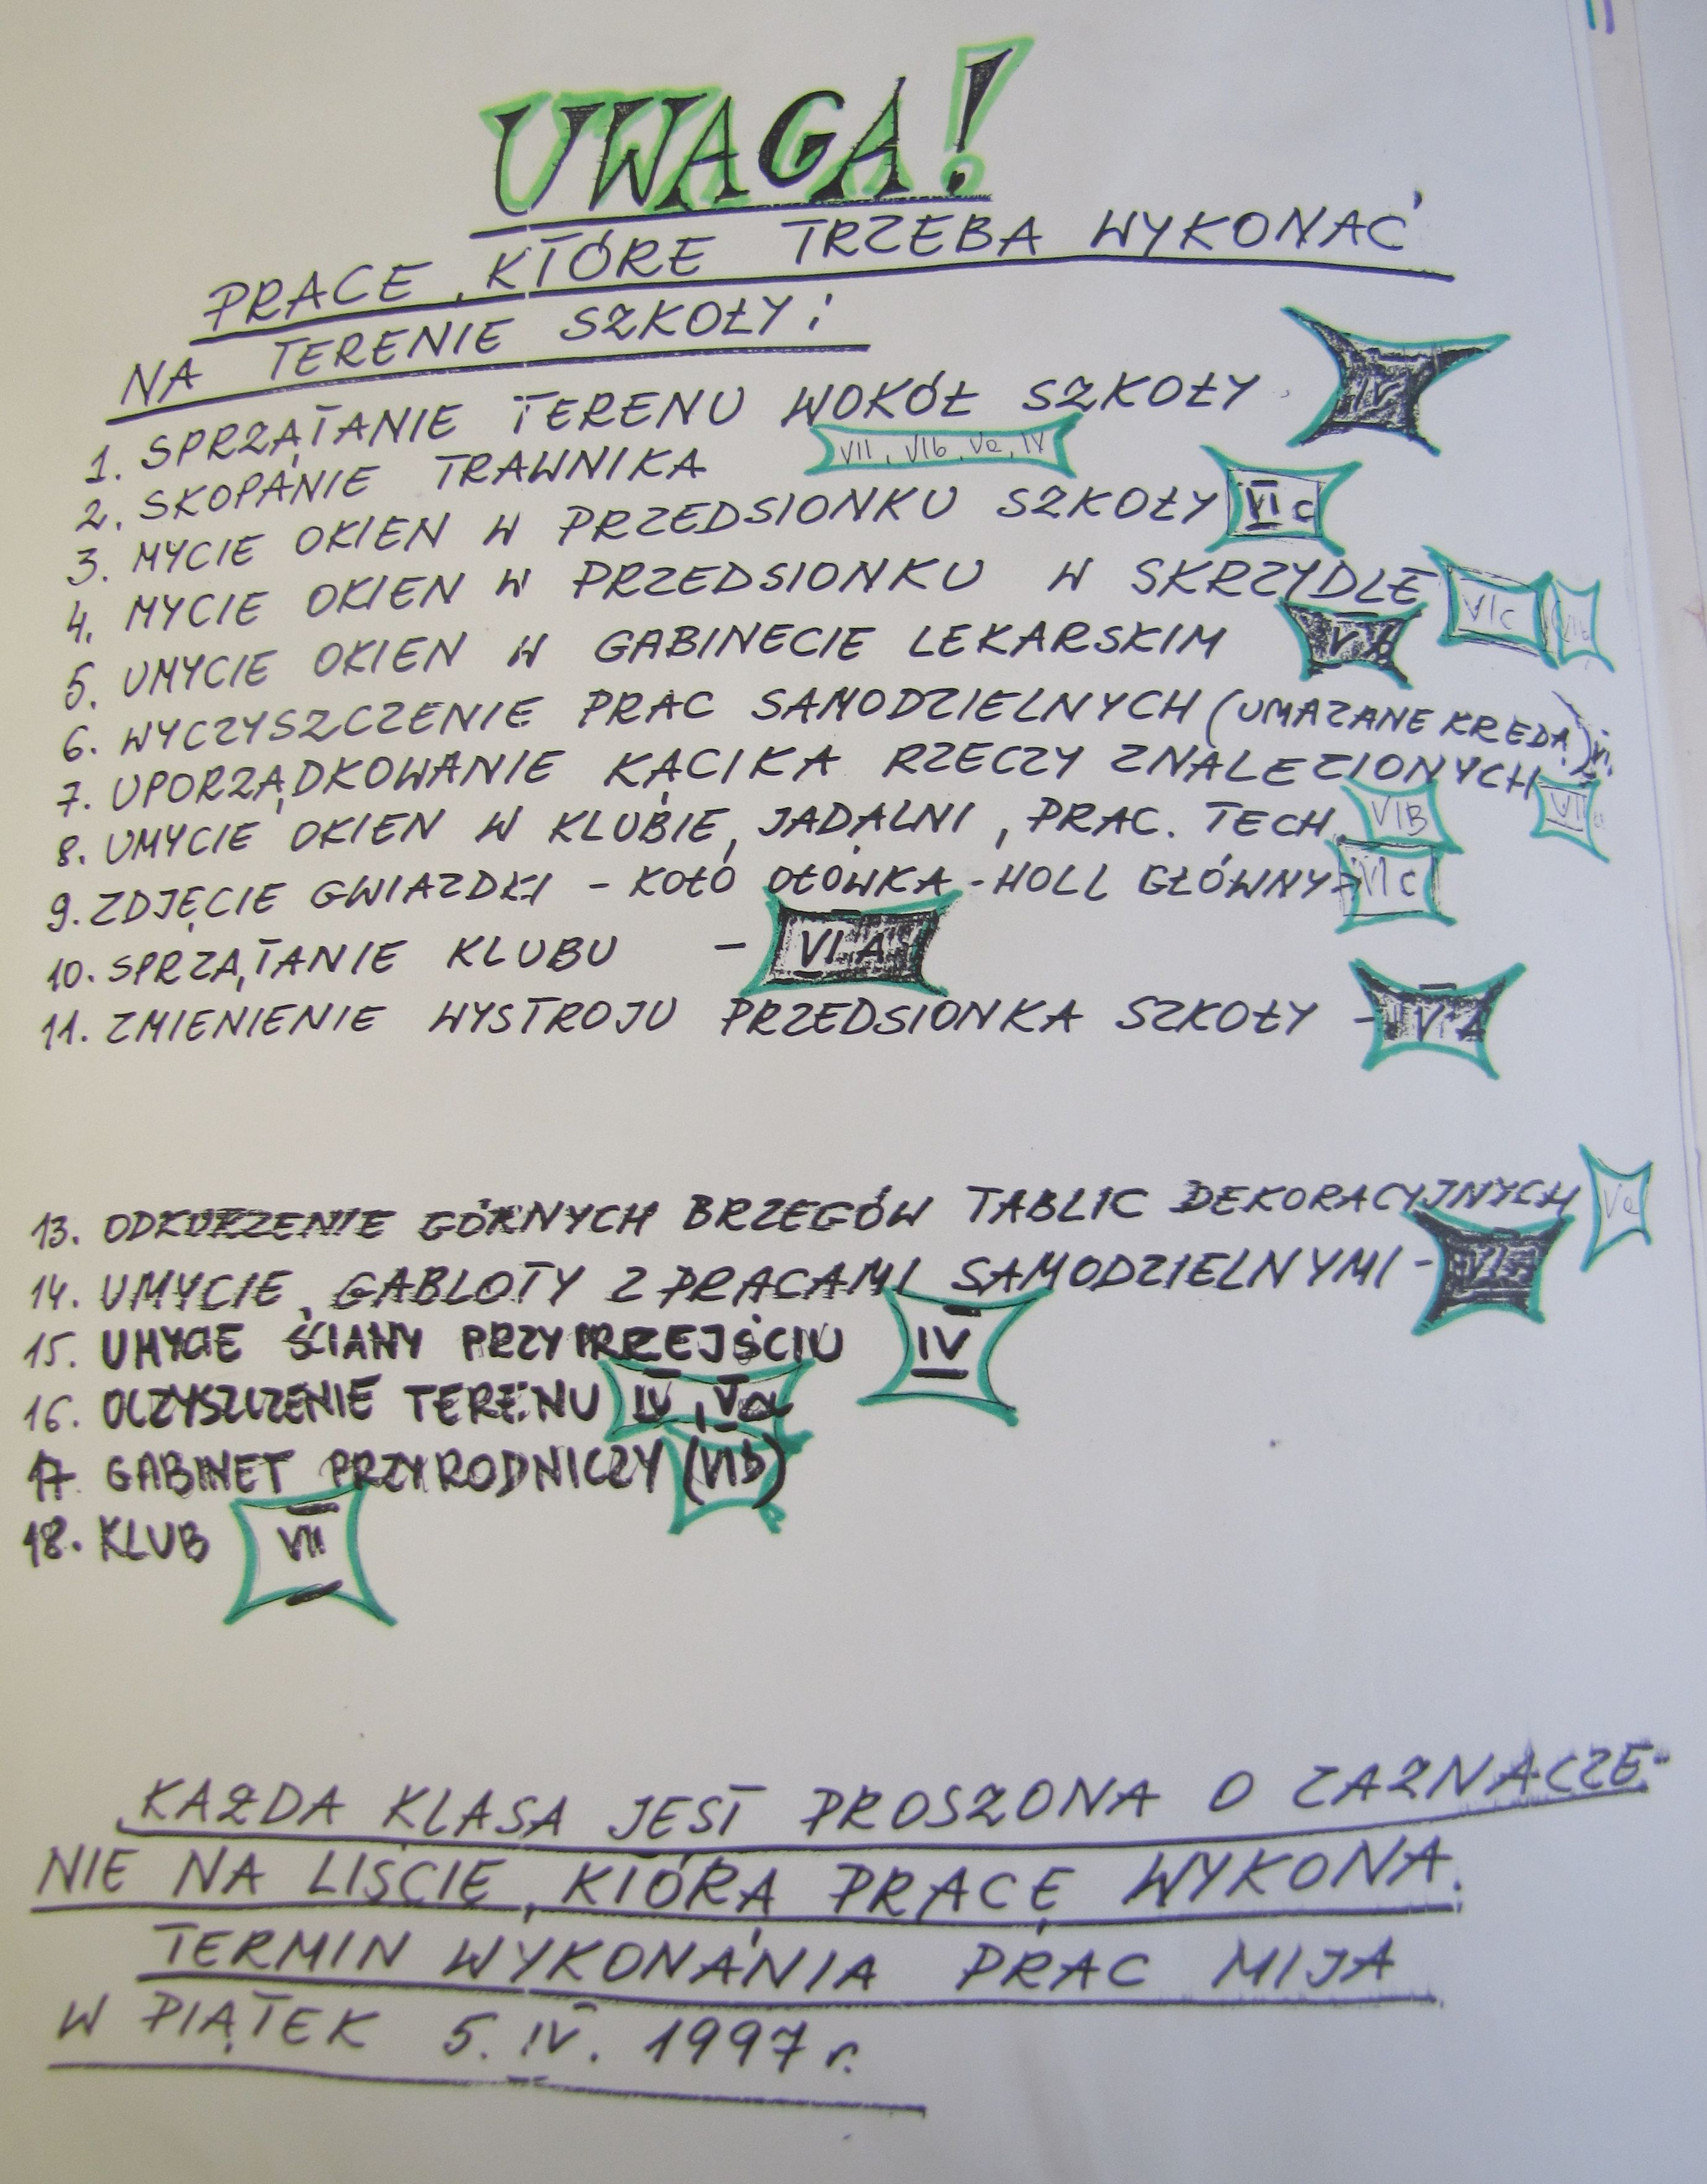 UWAGA!
PRACE, KTÓRE TRZEBA WYKONAĆ
NA TERENIE SZKOŁY:
1. SPRZĄTANIE TERENU WOKÓŁ SZKOŁY IV
2. SKOPANIE TRAWNIKA VII, VIb, Va, IV
3. MYCIE OKIEN W PRZEDSIONKU SZKOŁY VI c
4. MYCIE OKIEN W PRZEDSIONKU W SKRZYDLE VIC
5. UMYCIE OKIEN W GABINECIE LEKARSKIM V b
6. WYCZYSZCZENIE PRAC SAMODZIELNYCH (UMAZANE KREDĄ)
7. UPORZĄDKOWANIE KĄCIKA RZECZY ZNALEZIONYCH
8. UMYCIE OKIEN W KLUBIE, JADALNI, PRAC. TECH. VIB
9. ZDJĘCIE GWIAZDKI - KOŁO OŁÓWKA - HOLL GŁÓWNY VI C
10. SPRZĄTANIE KLUBU - VI A
11. ZMIENIENIE WYSTROJU PRZEDSIONKA SZKOŁY -
13. ODKURZENIE GÓRNYCH BRZEGÓW TABLIC DEKORACYJNYCH Va
14. UMYCIE GABLOTY Z PRACAMI SAMODZIELNYMI -
15. UMYCIE ŚCIANY PRZY PRZEJŚCIU IV
16. OCZYSZCZENIE TERENU IV, Va
17. GABINET PRZYRODNICZY (VIb)
18. KLUB VII
KAŻDA KLASA JEST PROSZONA O ZAZNACZE-
NIE NA LIŚCIE, KTÓRĄ PRACĘ WYKONA.
TERMIN WYKONANIA PRAC MIJA
W PIĄTEK 5. IV. 1997 r.